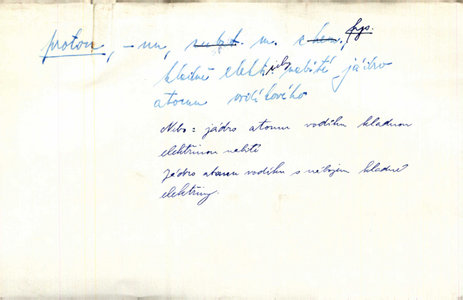 proton, -nu, subst. m. z chem., fys.
kladně elektricky nabité jádro
atomu vodíkového
Nebo: jádro atomu vodíku kladnou
elektřinou nabité
Jádro atomu vodíku s nábojem kladné
elektřiny.